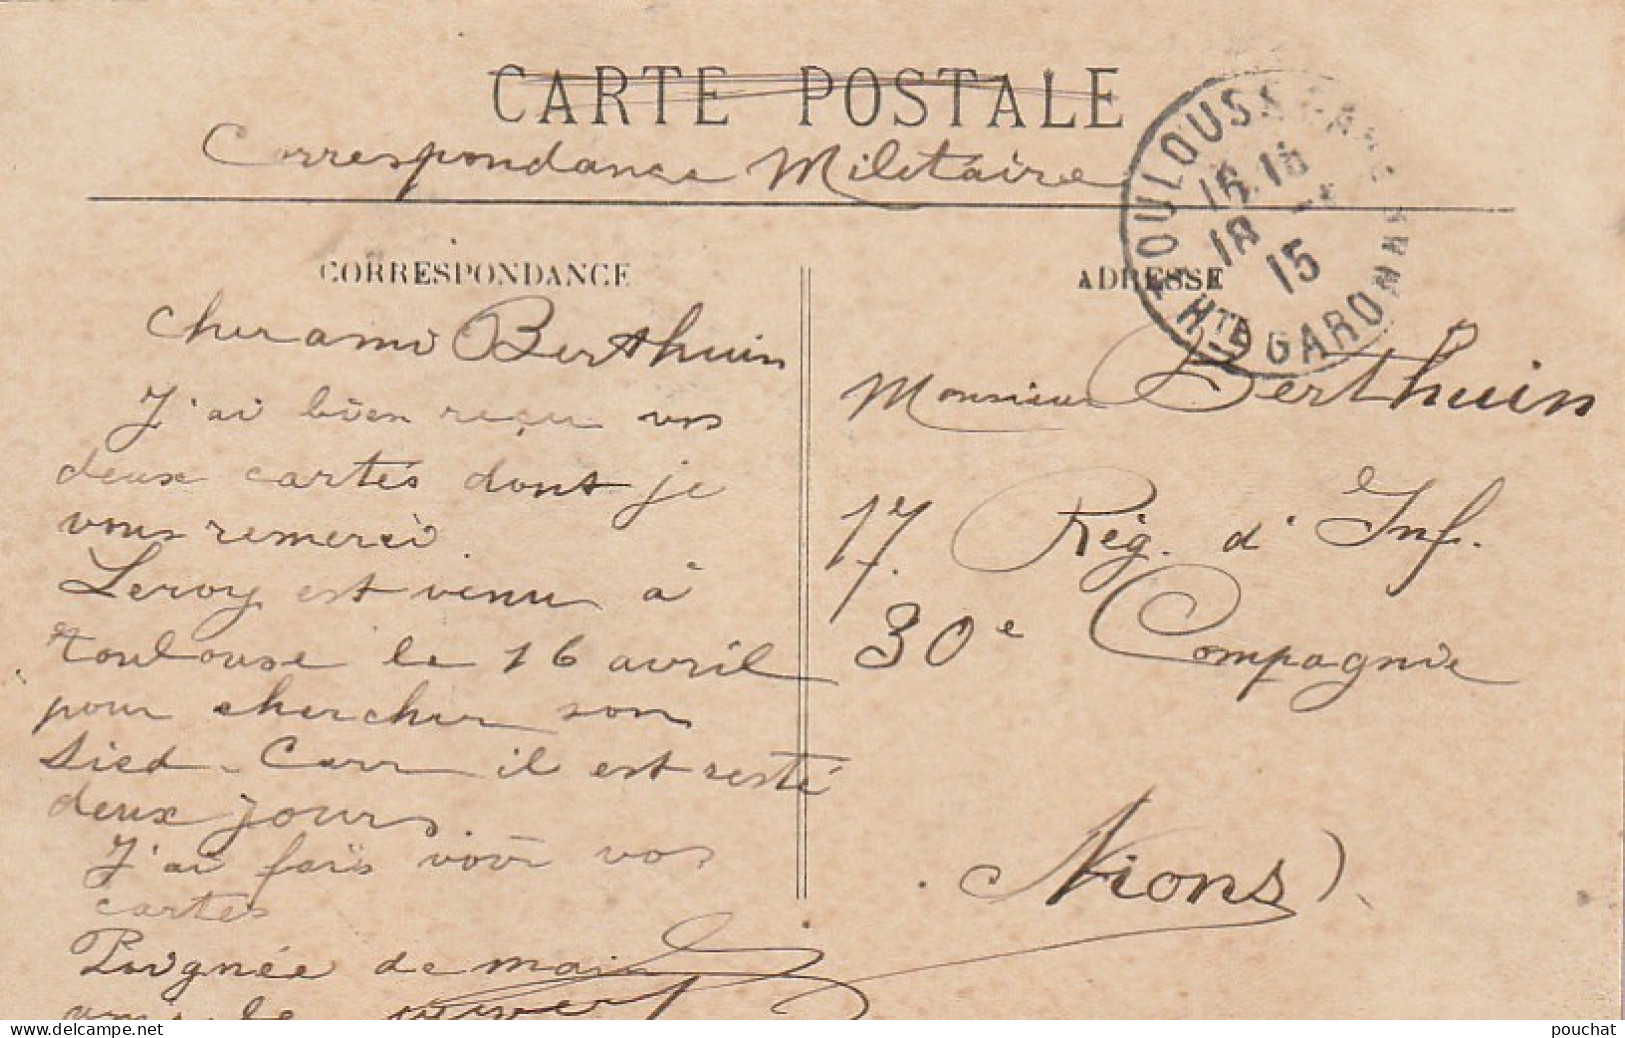 CARTE POSTALE
Correspondance Militaire
TOULOUSE GARE
16.15
18
15
Hte GARONNE
CORRESPONDANCE
cher ami Berthuin
J'ai bien reçu vos
deux cartes dont je
vous remerci.
Leroy est venu à
toulouse le 16 avril
pour chercher son
Sied - Carr il est resté
deux jours.
J'ai fais voir vos
cartes
Poignée de main
ADRESSE
Monsieur Berthuin
17. Rég. d'Inf.
30e Compagnie
Nions
delcampe.net
pouchat